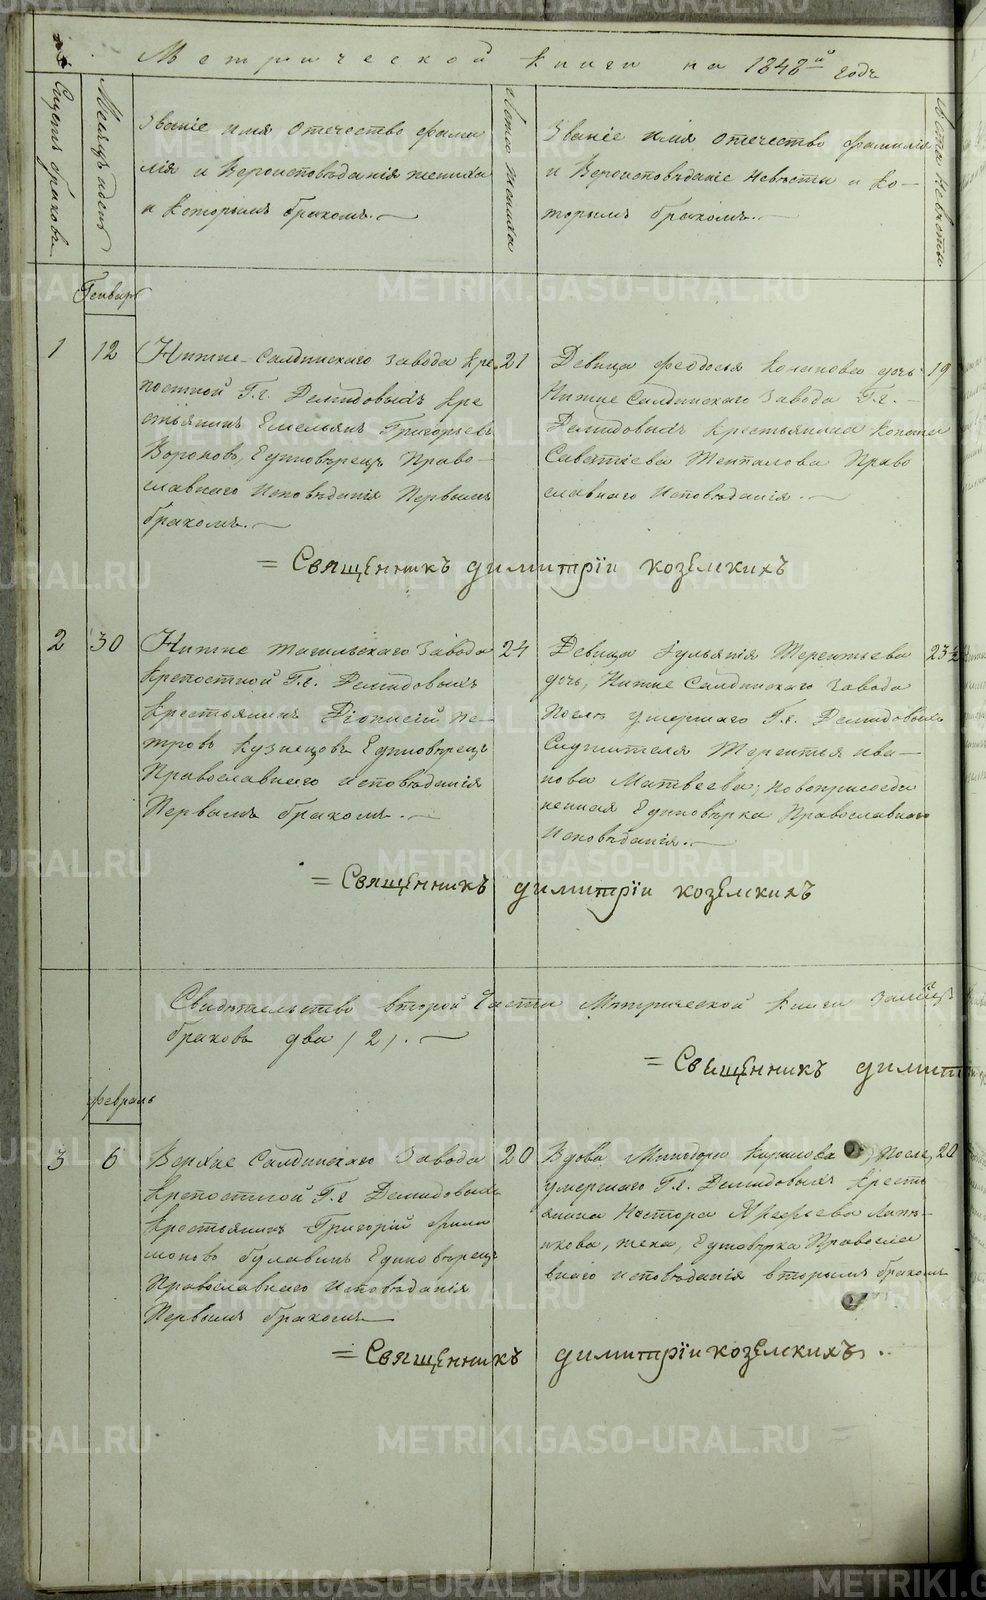 Метрической книги на 1848й годъ
Счетъ браковъ
Месяцъ и день
Званіе имя отечество фами
лія и Вероисповѣданія жениха
и Которымъ бракомъ.
Лета жениха
Званіе имя отечество фамилія
и Вероисповѣданіе Невѣсты и Ко-
торымъ бракомъ.
Лѣта Невѣсты
Генварь
1 12 Нижне-Салдинскаго завода кре- 21
постной Г.г. Демидовыхъ Кре
стьянинъ Емельянъ Григорьевъ
Вороновъ, Единовѣрецъ Право-
славнаго Исповѣданія Первымъ
бракомъ.
Девица Феодосья Кононова дочь 19
Нижне Салдинскаго завода Г.г.
Демидовыхъ Крестьянина Конона
Саватіева Шепталова Право
славнаго Исповѣданія.
= Священникъ димитріи козелскихъ
2 30 Нижне тагильскаго завода 24
Крепостной Г.г. Демидовыхъ
Крестьянинъ Діонисій Пе-
тровъ Кузнецовъ Единовѣрецъ
Православнаго исповѣданія
Первымъ бракомъ.
Девица Іульянія Терентьева 23½
дочь, Нижне Салдинскаго завода
После умершаго Г.г. Демидовыхъ
Служителя Терентья Ива-
нова Матвеева, новоприсоеди
ненная Единовѣрка Православнаго
Исповѣданія.
= Священникъ димитріи козелскихъ
Свидѣтельство второй Части Метрической Книги
браковъ два (2).
= Священникъ димит
февраль
3 6 Верхне Салдинскаго завода 20
Крепостной Г.г. Демидовыхъ
Крестьянинъ Григорій Фили
моновъ Булавинъ Единовѣрецъ
Православнаго Исповѣданія
Первымъ бракомъ
Вдова Минодора Кирилова После 20
умершаго Г.г. Демидовыхъ Кресть
янина Нестора Арефьева
жена, Единовѣрка Правосла
внаго исповѣданія вторымъ бракомъ
= Священникъ димитріи козелскихъ.
METRIKI.GASO-URAL.RU